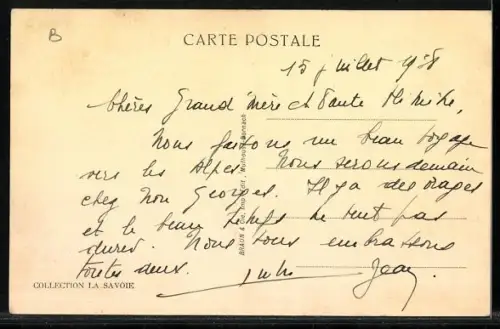 B
CARTE POSTALE
15 juillet 1938
Chères Grand'mère et Tante
Nous faisons un beau voyage
vers les Alpes. Nous serons demain
chez Mon Georges. Il y a des orages
et le beau temps ne veut pas
durer. Nous vous embrassons
toutes deux.
Jean
BRAUN & Cie, Imp.-Édit., Mulhouse-Dornach
COLLECTION LA SAVOIE